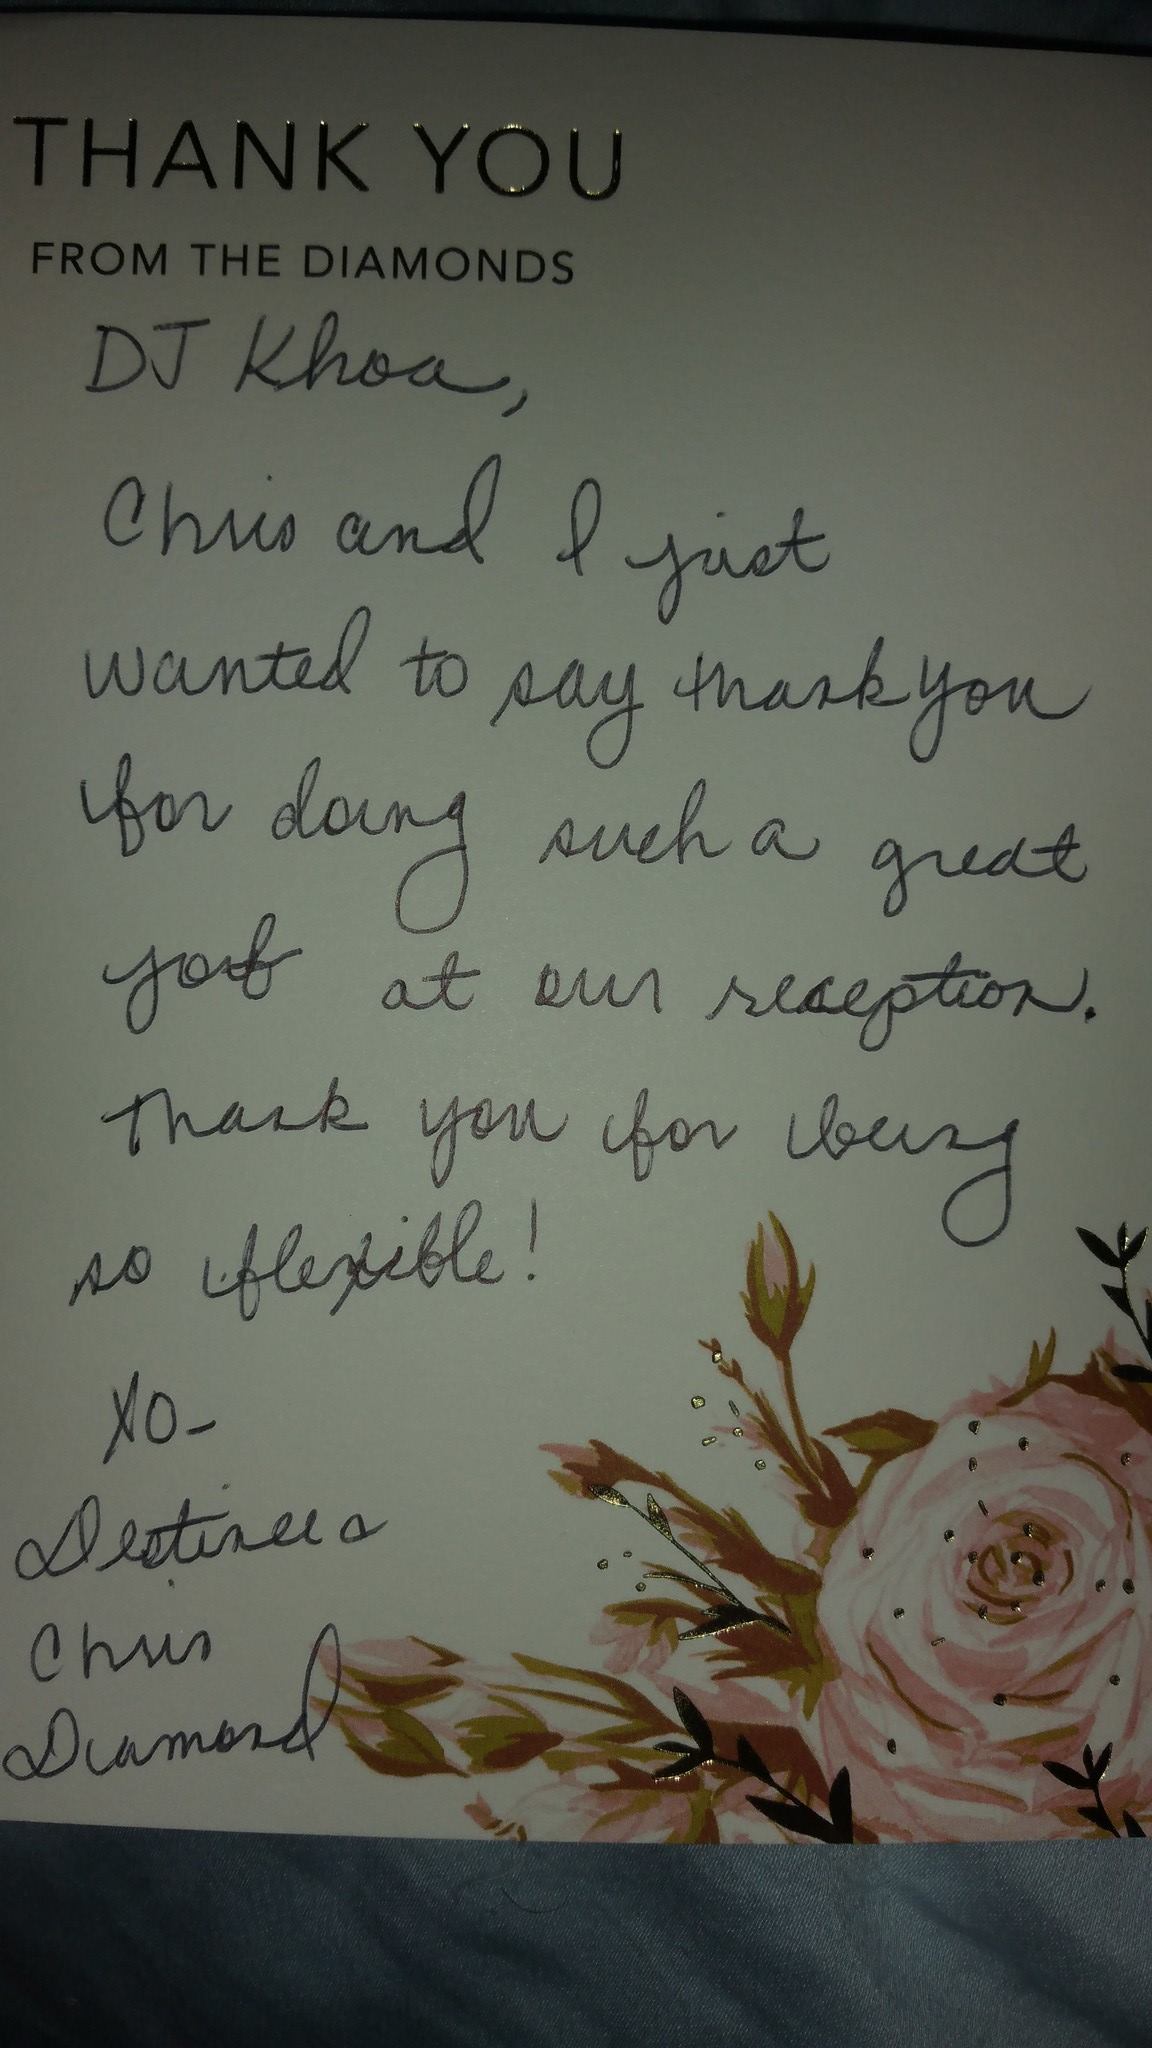 THANK YOU
FROM THE DIAMONDS
DJ Khoa,
Chris and I just
wanted to say thank you
for doing such a great
job at our reception.
Thank you for being
so flexible!
XO-
Destinee &
Chris
Diamond